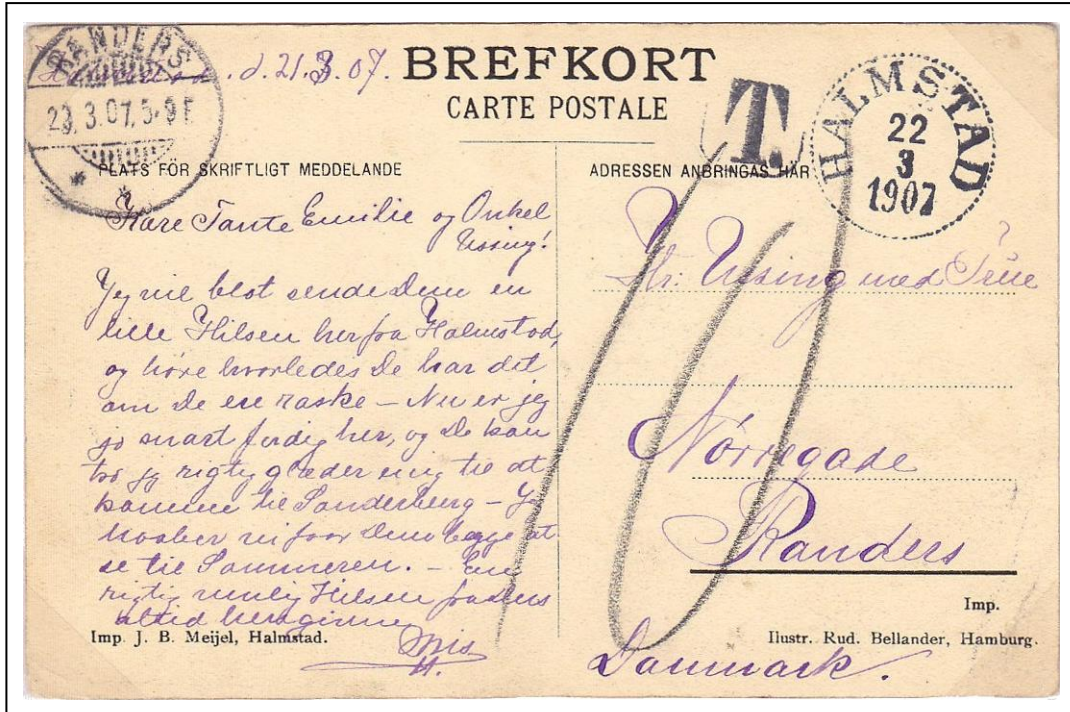 RANDERS
23.3.07.5-9F
d. 21.3.07.
BREFKORT
CARTE POSTALE
T.
HALMSTAD
22
3
1907
PLATS FÖR SKRIFTLIGT MEDDELANDE
ADRESSEN ANBRINGAS HÄR
Kære Tante Emilie og Onkel
Ussing!
Jeg vil blot sende Dem en
lille Hilsen herfra Halmstad,
og høre hvorledes De har det
om De ere raske – Nu er jeg
jo snart færdig her, og De kan
tro jeg rigtig glæder mig til at
komme til Sønderberg – Jeg
haaber vi faar Dem begge at
se til Sommeren. – En
rigtig venlig Hilsen fra Deres
altid hengivne
Hr. Ussing med Frue
Nørregade
Randers
Danmark.
10
Imp. J. B. Meijel, Halmstad.
Imp.
Ilustr. Rud. Bellander, Hamburg.